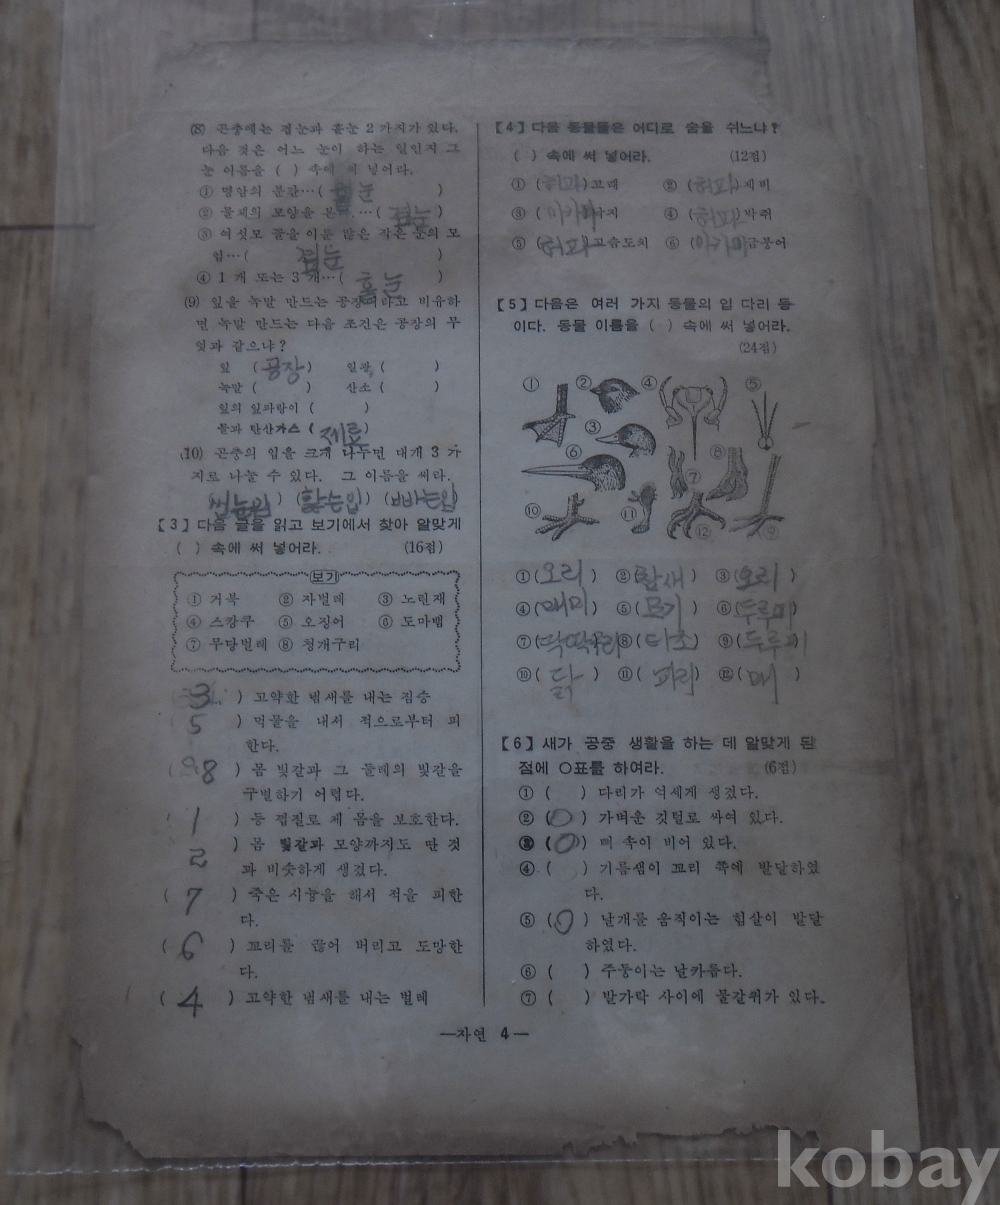 (8) 곤충에는 겹눈과 홑눈 2가지가 있다.
다음 것은 어느 눈이 하는 일인지 그
눈 이름을 ( ) 속에 써 넣어라.
① 명암의 분간…( 홑눈 )
② 물체의 모양을 본 …( 겹눈 )
③ 여섯모 꼴을 이룬 많은 작은 눈의 모
임…( 겹눈 )
④ 1개 또는 3개…( 홑눈 )
(9) 잎을 녹말 만드는 공장이라고 비유하
면 녹말 만드는 다음 조건은 공장의 무
엇과 같으냐?
잎 ( 공장 ) 일광 ( )
녹말 ( ) 산소 ( )
잎의 잎파랑이 ( )
물과 탄산가스 ( 제료 )
(10) 곤충의 입을 크게 나누면 대개 3가
지로 나눌 수 있다. 그 이름을 써라.
(씹는입) (핥는입) (빠는입)
【3】 다음 글을 읽고 보기에서 찾아 알맞게
( ) 속에 써 넣어라. (16점)
보기
① 거북 ② 자벌레 ③ 노린재
④ 스캉쿠 ⑤ 오징어 ⑥ 도마뱀
⑦ 무당벌레 ⑧ 청개구리
( 3 ) 고약한 냄새를 내는 짐승
( 5 ) 먹물을 내서 적으로부터 피
한다.
( 8 ) 몸 빛갈과 그 둘레의 빛갈을
구별하기 어렵다.
( 1 ) 등 껍질로 제 몸을 보호한다.
( 2 ) 몸 빛갈과 모양까지도 딴 것
과 비슷하게 생겼다.
( 7 ) 죽은 시늉을 해서 적을 피한
다.
( 6 ) 꼬리를 끊어 버리고 도망한
다.
( 4 ) 고약한 냄새를 내는 벌레
【4】 다음 동물들은 어디로 숨을 쉬느냐?
( ) 속에 써 넣어라. (12점)
① (허파) 고래 ② (허파) 제비
③ (아가미) 낙지 ④ (허파) 박쥐
⑤ (허파) 고슴도치 ⑥ (아가미) 금붕어
【5】 다음은 여러 가지 동물의 입 다리 등
이다. 동물 이름을 ( ) 속에 써 넣어라.
(24점)
① ② ④ ⑤
③
⑥ ⑧
⑦
⑩ ⑪ ⑫ ⑨
① (오리) ② (참새) ③ (오리)
④ (매미) ⑤ (모기) ⑥ (두루미)
⑦ (딱딱구리) ⑧ (타조) ⑨ (두루미)
⑩ (닭) ⑪ (파리) ⑫ (매)
【6】 새가 공중 생활을 하는 데 알맞게 된
점에 ○표를 하여라. (6점)
① ( ) 다리가 억세게 생겼다.
② (○) 가벼운 깃털로 싸여 있다.
③ (○) 뼈 속이 비어 있다.
④ ( ) 기름샘이 꼬리 쪽에 발달하였
다.
⑤ (○) 날개를 움직이는 힘살이 발달
하였다.
⑥ ( ) 주둥이는 날카롭다.
⑦ ( ) 발가락 사이에 물갈퀴가 있다.
—자연 4—
kobay